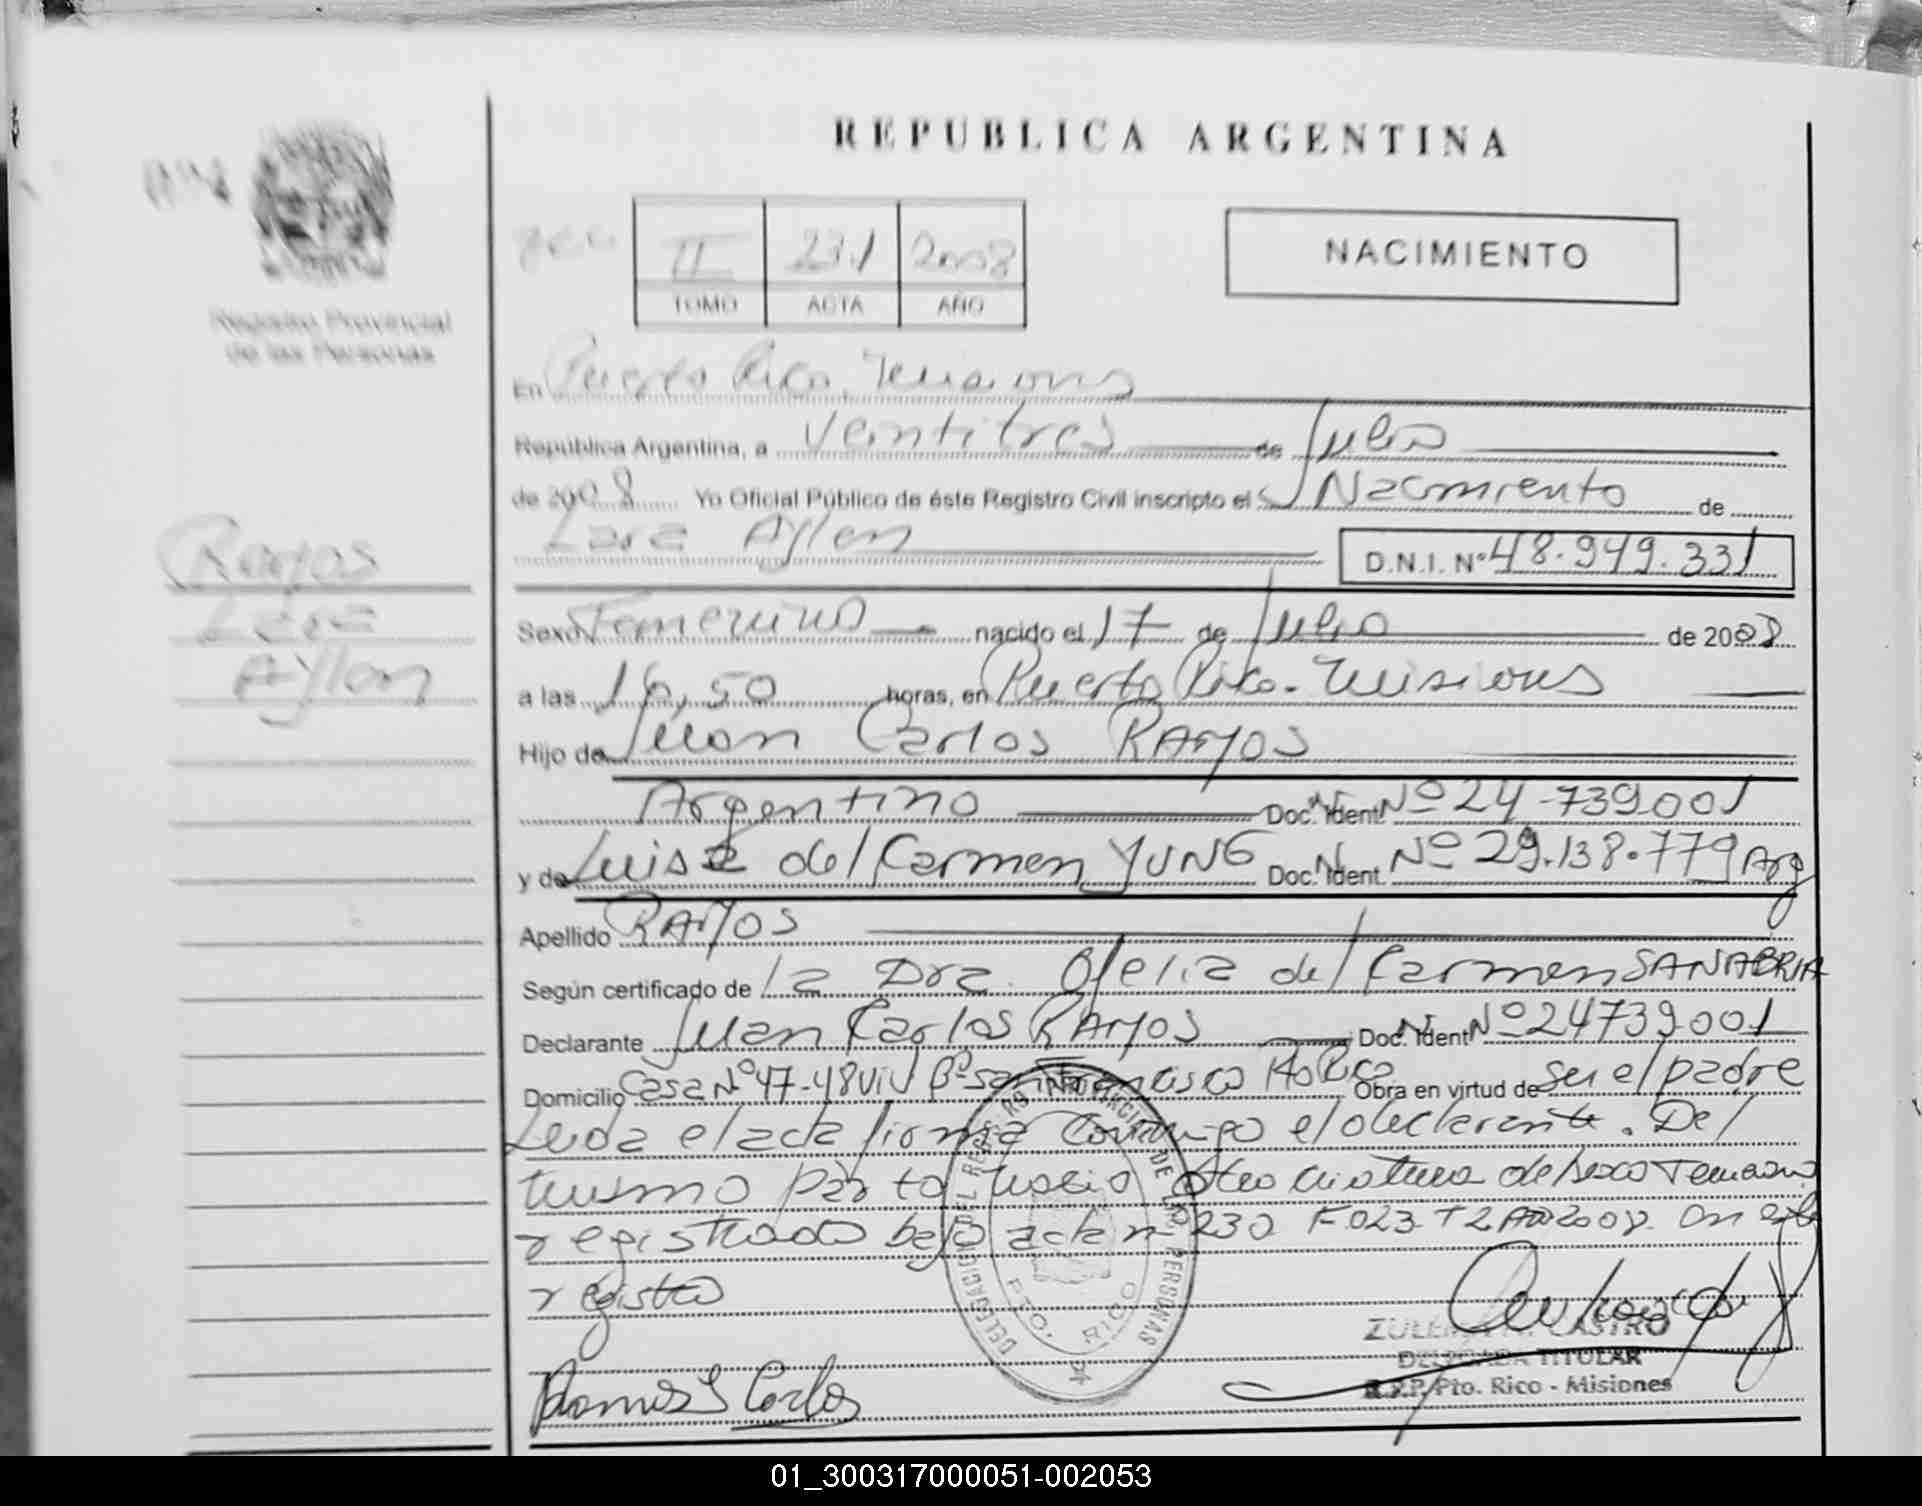 REPUBLICA ARGENTINA
Registro Provincial
de las Personas
II 231 2008
TOMO ACTA AÑO
NACIMIENTO
En Puerto Rico. Misiones
República Argentina, a veintitres de Julio
de 2008 Yo Oficial Público de éste Registro Civil inscripto el Nacimiento de
Lara Aylen
D.N.I. Nº 48.949.331
Ramos
Lara
Aylen
Sexo Femenino nacido el 17 de Julio de 2008
a las 16,50 horas, en Puerto Rico. Misiones
Hijo de Juan Carlos RAMOS
Argentino Doc. Ident. Nº 24.739.001
y de Luisa del Carmen YUNG Doc. Ident. Nº 29.138.779 Arg
Apellido RAMOS
Según certificado de la Dra. Ofelia del Carmen SANABRIA
Declarante Juan Carlos RAMOS Doc. Ident. Nº 24739001
Domicilio Casa Nº 47-48 Viv Bº San Francisco Pto Rico Obra en virtud de ser el padre
Leida el acta firma conmigo el declarante. Del
mismo parto nacio otra criatura de sexo Femenino
registrada bajo acta nº 230 F023 T2 Año 2008 en este
registro
DELEGACION DEL REG. PROVINCIAL DE LAS PERSONAS
PTO. RICO
Ramos J Carlos
CASTRO
DELEGADA TITULAR
R.P.P. Pto. Rico - Misiones
01_300317000051-002053